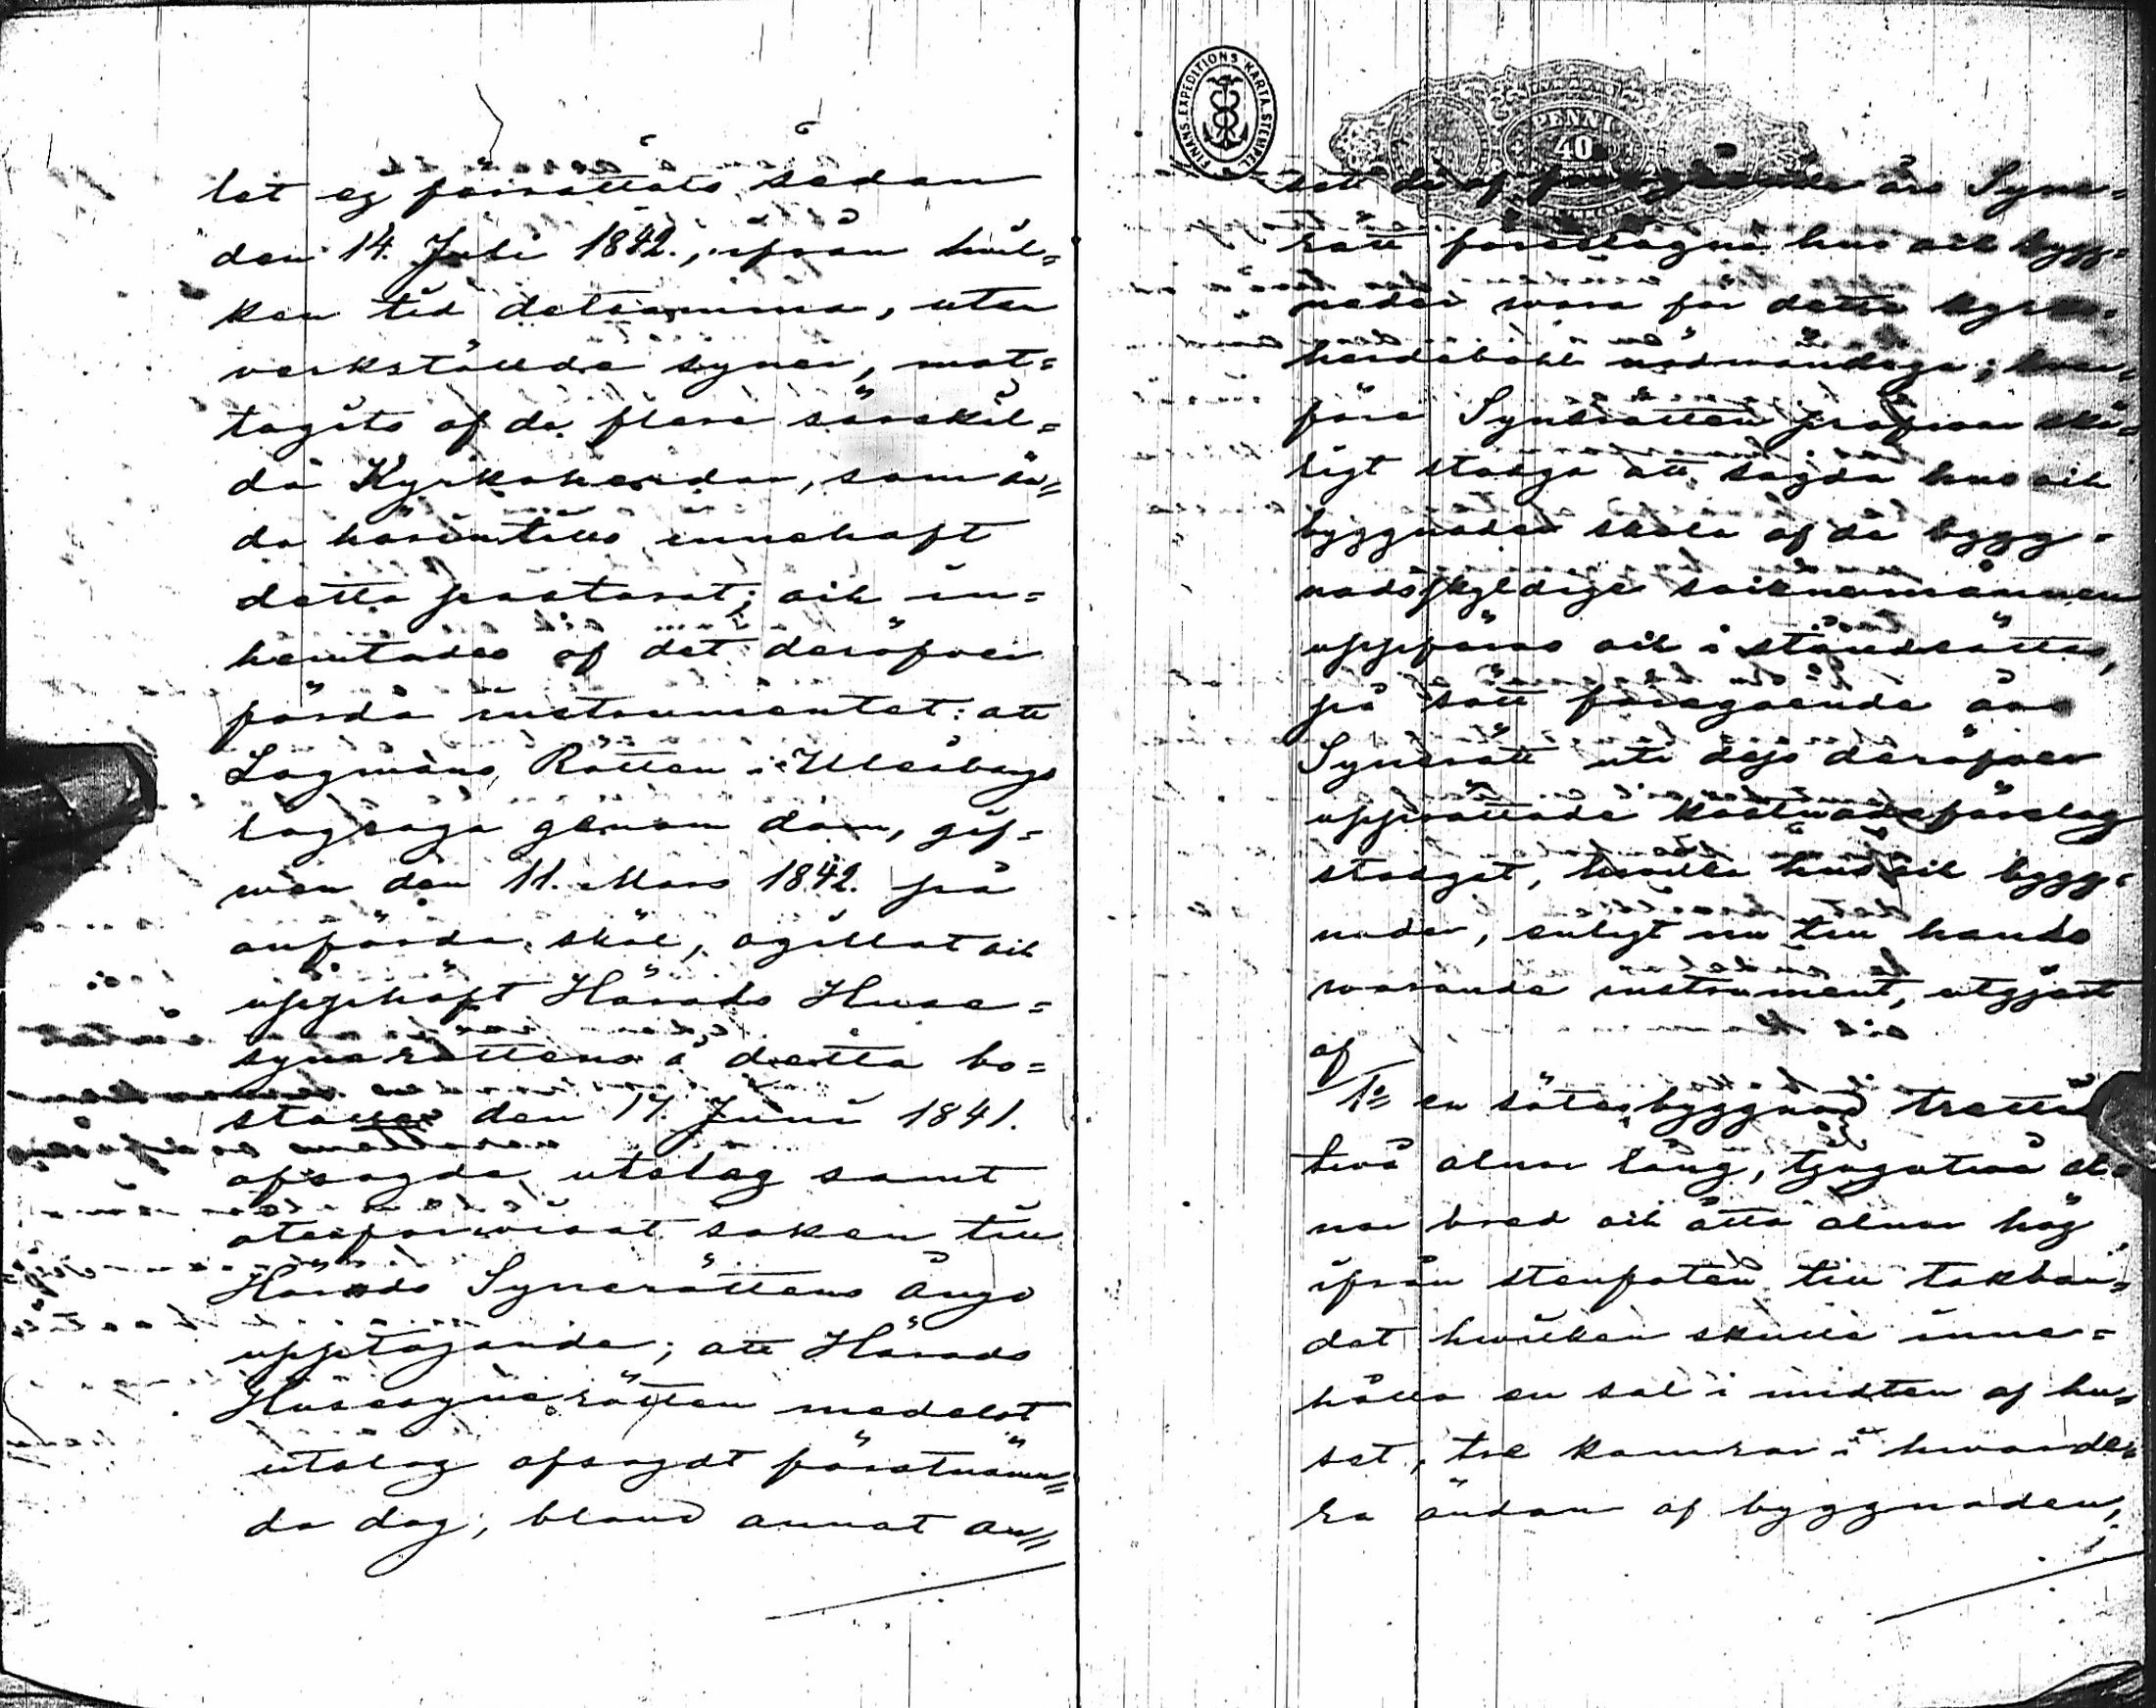 let ej förrättats sedan
den 14. Juli 1842., ifrån hvil=
ken tid detsamma, utan
verkställde syner, mot=
tagits af de flere särskil=
da Kyrkoherdar, som så=
da härintills innehaft
detta pastorat; och in=
hemtades af det deröfver
förda instrumentet: att
Lagmans Rätten i Uleåborgs
lagsaga genom dom, gif=
wen den 11. Mars 1842. på
anförda skäl, ogillat och
upphäft Härads Huse=
synerättens å detta bo=
ställe den 17. Juni 1841.
afsagda utslag samt
återförwisat saken till
Härads Synerättens ånyo
upptagande; att Härads
Husesynerätten medelst
utslag afsagdt förstnämn=
da dag, bland annat an=
FINANS. EXPEDITIONS KARTA. STEMPEL
PENNI
40
sett de af föregående års Syne=
rätt föreslagna hus och bygg=
nader wara för detta kyrko=
herdeboställ nödwändiga; hvar=
före Synerätten pröfwar skä=
ligt stadga att sagda hus och
byggnader skola af de bygg=
nadsskyldige socknemännen
uppföras och i ståndsättas,
på sätt föregående års
Synerätt uti dess deröfver
upprättade kostnadsförslag
stadgat, hwilka hus och bygg=
nader, enligt nu till hands
warande instrument, utgjort
af
1o= en sätesbyggnad trettio
två alnar lång, tjugutwå al=
nar bred och åtta alnar hög
ifrån stenfoten till takban=
det hwilken skulle inne=
hålla en sal i midten af hu=
set, tre kamrar i hwarde=
ra ändan af byggnaden,